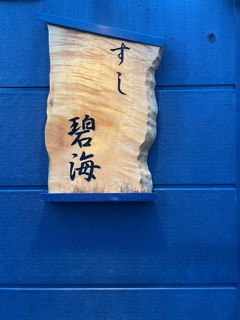 すし
碧海